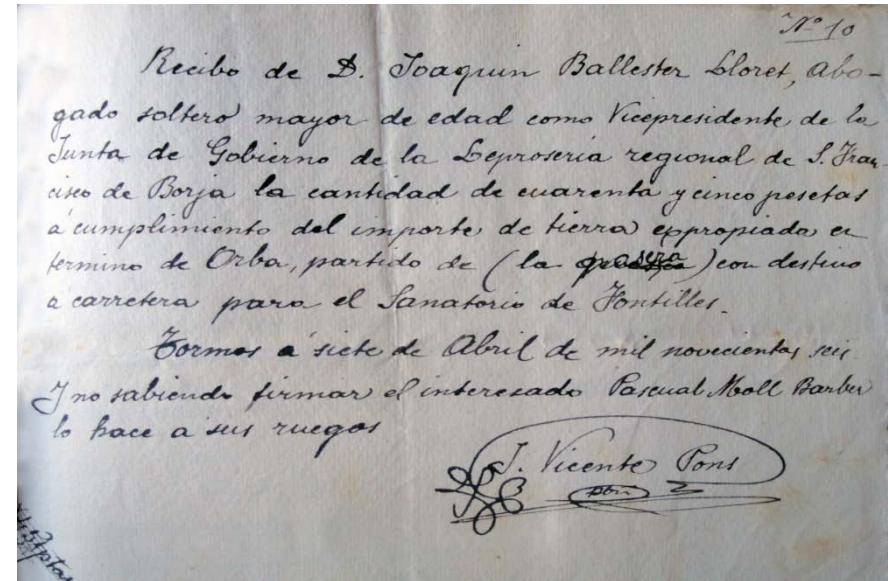 Nº 10
Recibo de D. Joaquin Ballester Lloret, Abo-
gado soltero mayor de edad como Vicepresidente de la
Junta de Gobierno de la Leproseria regional de S. Fran-
cisco de Borja la cantidad de cuarenta y cinco pesetas
á cumplimiento del importe de tierra expropiada en
termino de Orba, partido de (la ) con destino
á carretera para el Sanatorio de Fontilles.
Tormos á siete de Abril de mil novecientos seis
Y no sabiendo firmar el interesado Pascual Moll Barber
lo hace a sus ruegos
J. Vicente Pons